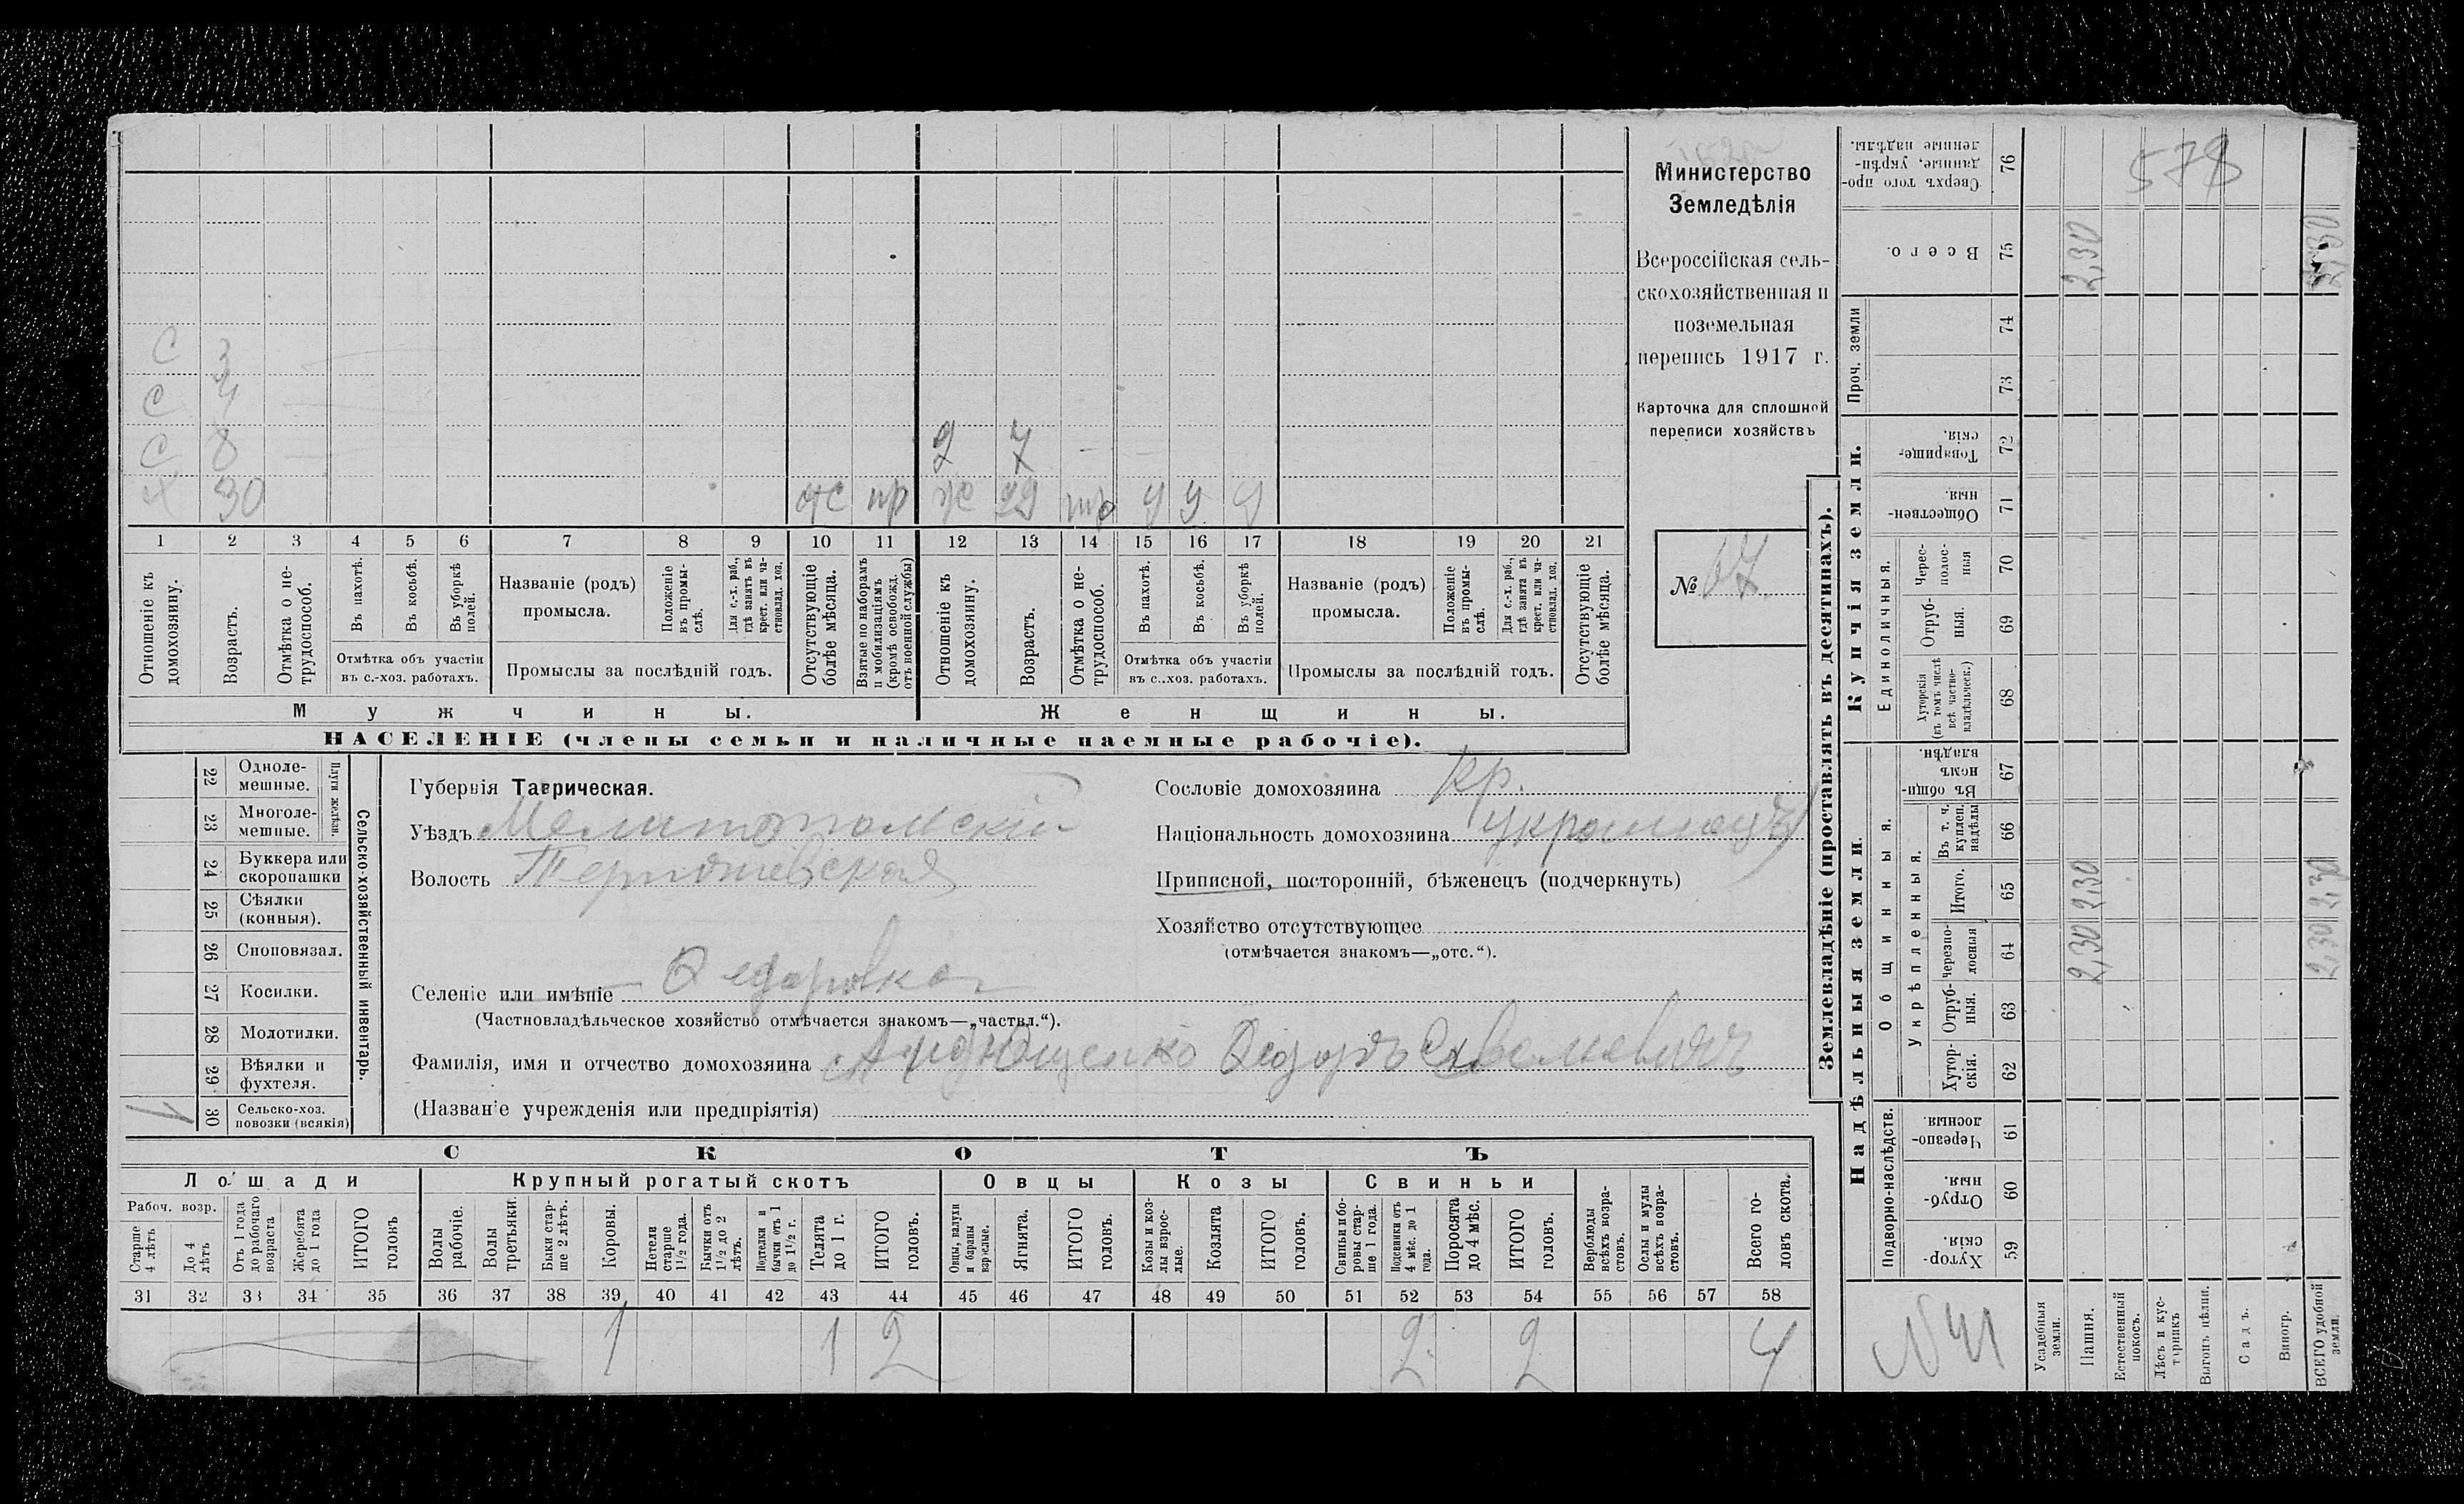 С 3
С 4
С 8
Д 7
Х 30 отс пр ж 29 тр у у у
1 2 3 4 5 6 7 8 9 10 11 12 13 14 15 16 17 18 19 20 21
Отношеніе къ домохозяину.
Возрастъ.
Отмѣтка о нетрудоспособ.
Въ пахотѣ.
Въ косьбѣ.
Въ уборкѣ полей.
Отмѣтка объ участіи
въ с.-хоз. работахъ.
Названіе (родъ)
промысла.
Положеніе въ промыслѣ.
Для с.-х. раб., гдѣ занятъ въ крест. или частновлад. хоз.
Промыслы за послѣдній годъ.
Отсутствующіе болѣе мѣсяца.
Взятые по наборамъ и мобилизаціямъ (кромѣ освобожд. отъ военной службы)
Отношеніе къ домохозяину.
Возрастъ.
Отмѣтка о нетрудоспособ.
Въ пахотѣ.
Въ косьбѣ.
Въ уборкѣ полей.
Отмѣтка объ участіи
въ с..хоз. работахъ.
Названіе (родъ)
промысла.
Положеніе въ промыслѣ.
Для с.-х. раб., гдѣ занята въ крест. или частновлад. хоз.
Промыслы за послѣдній годъ.
Отсутствующіе болѣе мѣсяца.
Мужчины.
Женщины.
НАСЕЛЕНІЕ (члены семьи и наличные наемные рабочіе).
Министерство
Земледѣлія
Всероссійская сель-
скохозяйственная и
поземельная
перепись 1917 г.
Карточка для сплошной
переписи хозяйствъ
№ 67
22 Одноле-
мешные.
23 Многоле-
мешные.
Плуги желѣзн.
24 Буккера или
скоропашки
25 Сѣялки
(конныя).
26 Сноповязал.
27 Косилки.
28 Молотилки.
29 Вѣялки и
фухтеля.
30 Сельско-хоз.
повозки (всякія)
Сельско-хозяйственный инвентарь.
Губернія Таврическая.
Уѣздъ Мелитопольскій
Волость
Селеніе или имѣніе Федоровка
(Частновладѣльческое хозяйство отмѣчается знакомъ—„частвл.“).
Фамилія, имя и отчество домохозяина Андющенко Федоръ Савельевичъ
(Названіе учрежденія или предпріятія)
Сословіе домохозяина кр.
Національность домохозяина украинецъ
Приписной, посторонній, бѣженецъ (подчеркнуть)
Хозяйство отсутствующее
(отмѣчается знакомъ—„отс.“).
СКОТЪ
Лошади
Крупный рогатый скотъ
Овцы
Козы
Свиньи
Рабоч. возр.
Старше 4 лѣтъ
До 4 лѣтъ
Отъ 1 года до рабочаго возраста
Жеребята до 1 года
ИТОГО головъ
Волы рабочіе.
Волы третьяки.
Быки старше 2 лѣтъ.
Коровы.
Нетели старше 1½ года.
Бычки отъ 1½ до 2 лѣтъ.
Подтелки и бычки отъ 1 до 1½ г.
Телята до 1 г.
ИТОГО головъ.
Овцы, валухи и бараны взрослые.
Ягнята.
ИТОГО головъ.
Козы и козлы взрослые.
Козлята
ИТОГО головъ.
Свиньи и боровы старше 1 года.
Подсвинки отъ 4 мѣс. до 1 года.
Поросята до 4 мѣс.
ИТОГО головъ.
Верблюды всѣхъ возрастовъ.
Ослы и мулы всѣхъ возрастовъ.
Всего головъ скота.
31 32 33 34 35 36 37 38 39 40 41 42 43 44 45 46 47 48 49 50 51 52 53 54 55 56 57 58
1 1 2 2 2 4
Землевладѣніе (проставлять въ десятинахъ).
Купчія земли.
Надѣльныя земли.
Сверхъ того проданные, укрѣпленные надѣлы. 76 578
Всего. 75 2,30 2,30
Проч. земли 74
73
Товарищескія. 72
Общественныя. 71
Единоличныя.
Черезполосныя 70
Отрубныя. 69
Хуторскія (въ томъ числѣ всѣ частновладѣльческ.) 68
Общинныя.
Въ общинномъ владѣн. 67
Укрѣпленныя.
Въ т. ч. куплен. надѣлы 66
Итого. 65 2,30 2,30
Черезполосныя 64 2,30 2,30
Отрубныя. 63
Хуторскія. 62
Подворно-наслѣдств.
Черезполосныя. 61
Отрубныя. 60
Хуторскія. 59
№41
Усадебныя земли.
Пашня.
Естественный покосъ.
Лѣсъ и кустарникъ
Выгонъ цѣлин.
Садъ.
Виногр.
ВСЕГО удобной земли.